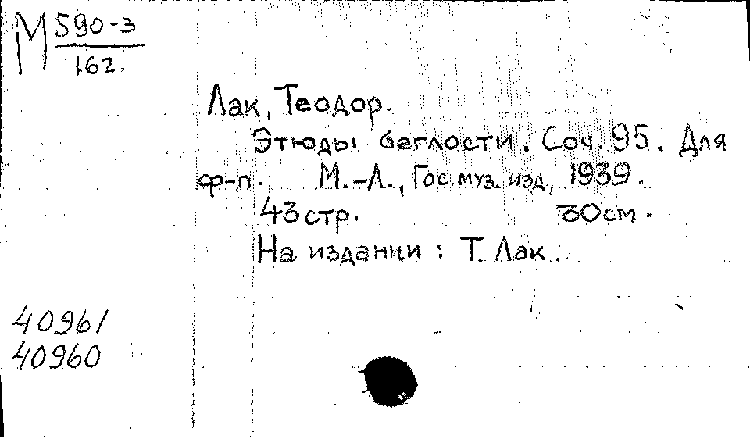 М 590-3
162.
Лак, Теодор.
Этюды беглости. Соч. 95. Для
ф-п. М.-Л., Гос. муз. изд., 1939.
43 стр. 30 см.
На издании: Т. Лак.
40961
40960